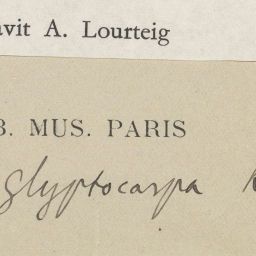 avit A. Lourteig
B. MUS. PARIS
glyptocarpa